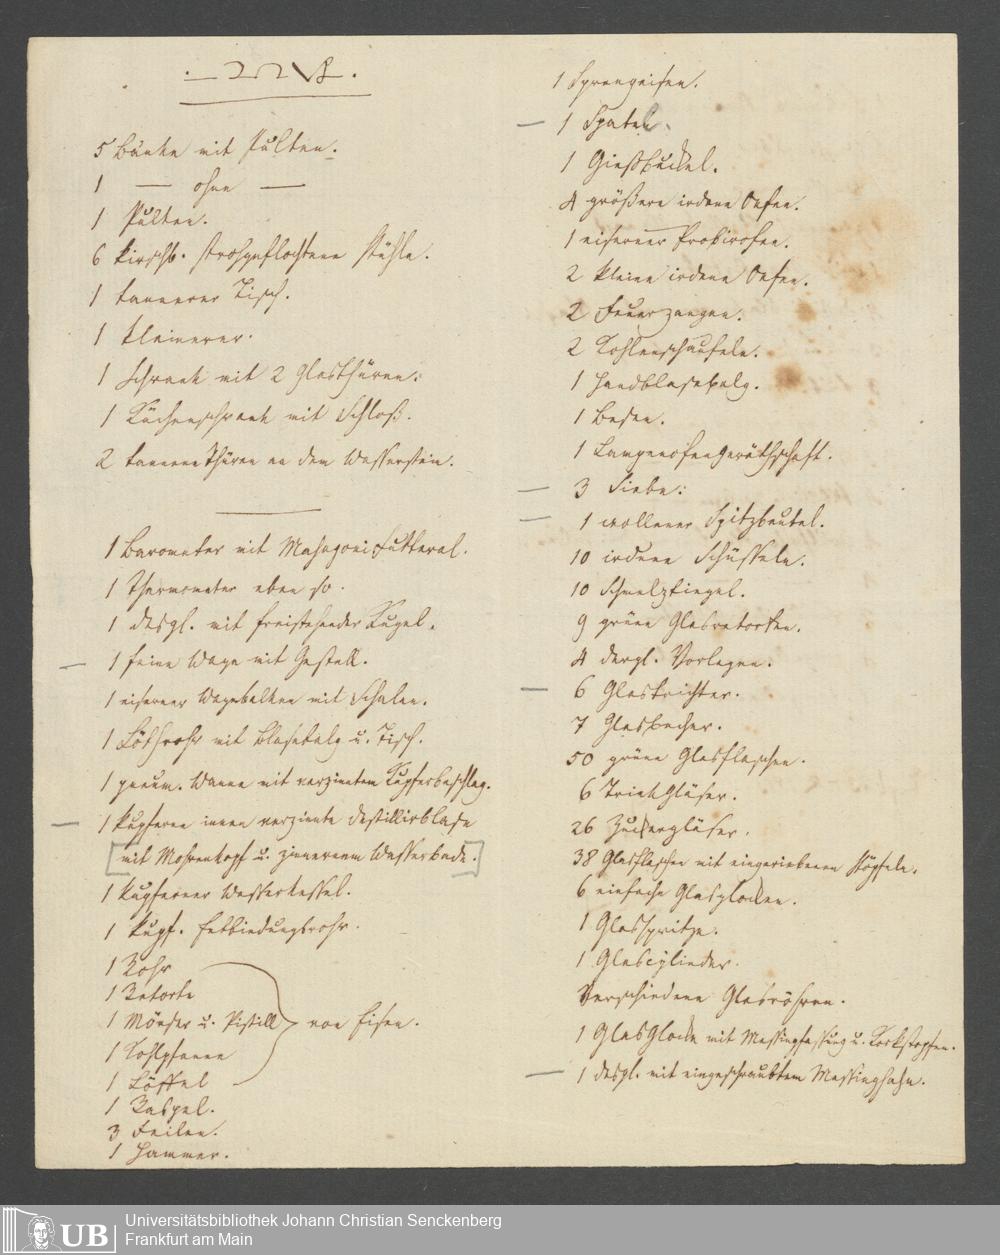 5 Bänke mit Pulten.
1 — ohne —
1 Pulten.
6 kirschb. strohgeflochtene Stühle.
1 tannener Tisch.
1 kleinerer.
1 Schrank mit 2 Glasthüren.
1 Küchenschrank mit Schloß.
2 tannene Thüren an dem Wasserstein.
1 Barometer mit Mahagoni Futteral.
1 Thermometer eben so.
1 desgl. mit freistehender Kugel.
1 feine Wage mit Gestell.
1 eiserner Wagebalken mit Schalen.
1 Löthrohr mit Blasebalg u. Tisch.
1 pneum. Wanne mit verzinntem Kupferbeschlag.
1 kupferne innen verzinnte Destillirblase
[mit Mohrenkopf u. zinnernem Wasserbade.]
1 kupferner Wasserkessel.
1 kupf. Entbindungsrohr.
1 Rohr
1 Retorte
1 Mörser u. Pistill } von Eisen.
1 Kohlpfanne
1 Löffel
1 Raspel.
3 Feilen.
1 Hammer.
1 Sprengeisen.
1 Spatel.
1 Gießbuckel.
4 größere irdene Oefen.
1 eiserner Probirofen.
2 kleine irdene Oefen.
2 Feuerzangen.
2 Kohlenschaufeln.
1 Handblasebalg.
1 Besen.
1 Lampenofengeräthschaft.
3 Siebe:
1 wollener Spitzbeutel.
10 irdene Schüsseln.
10 Schmelztiegel.
9 grüne Glasretorten.
4 dergl. Vorlagen.
6 Glastrichter.
7 Glasbecher.
50 grüne Glasflaschen.
6 Trinkgläser.
26 Zuckergläser.
38 Glasflaschen mit eingeriebenen Stöpseln.
6 einfache Glasglocken.
1 Glasspritze.
1 Glascylinder.
Verschiedene Glasröhren.
1 Glasglocke mit Messingfassung u. Korkstopfen.
1 desgl. mit eingeschraubtem Messinghahn.
UB Universitätsbibliothek Johann Christian Senckenberg
Frankfurt am Main